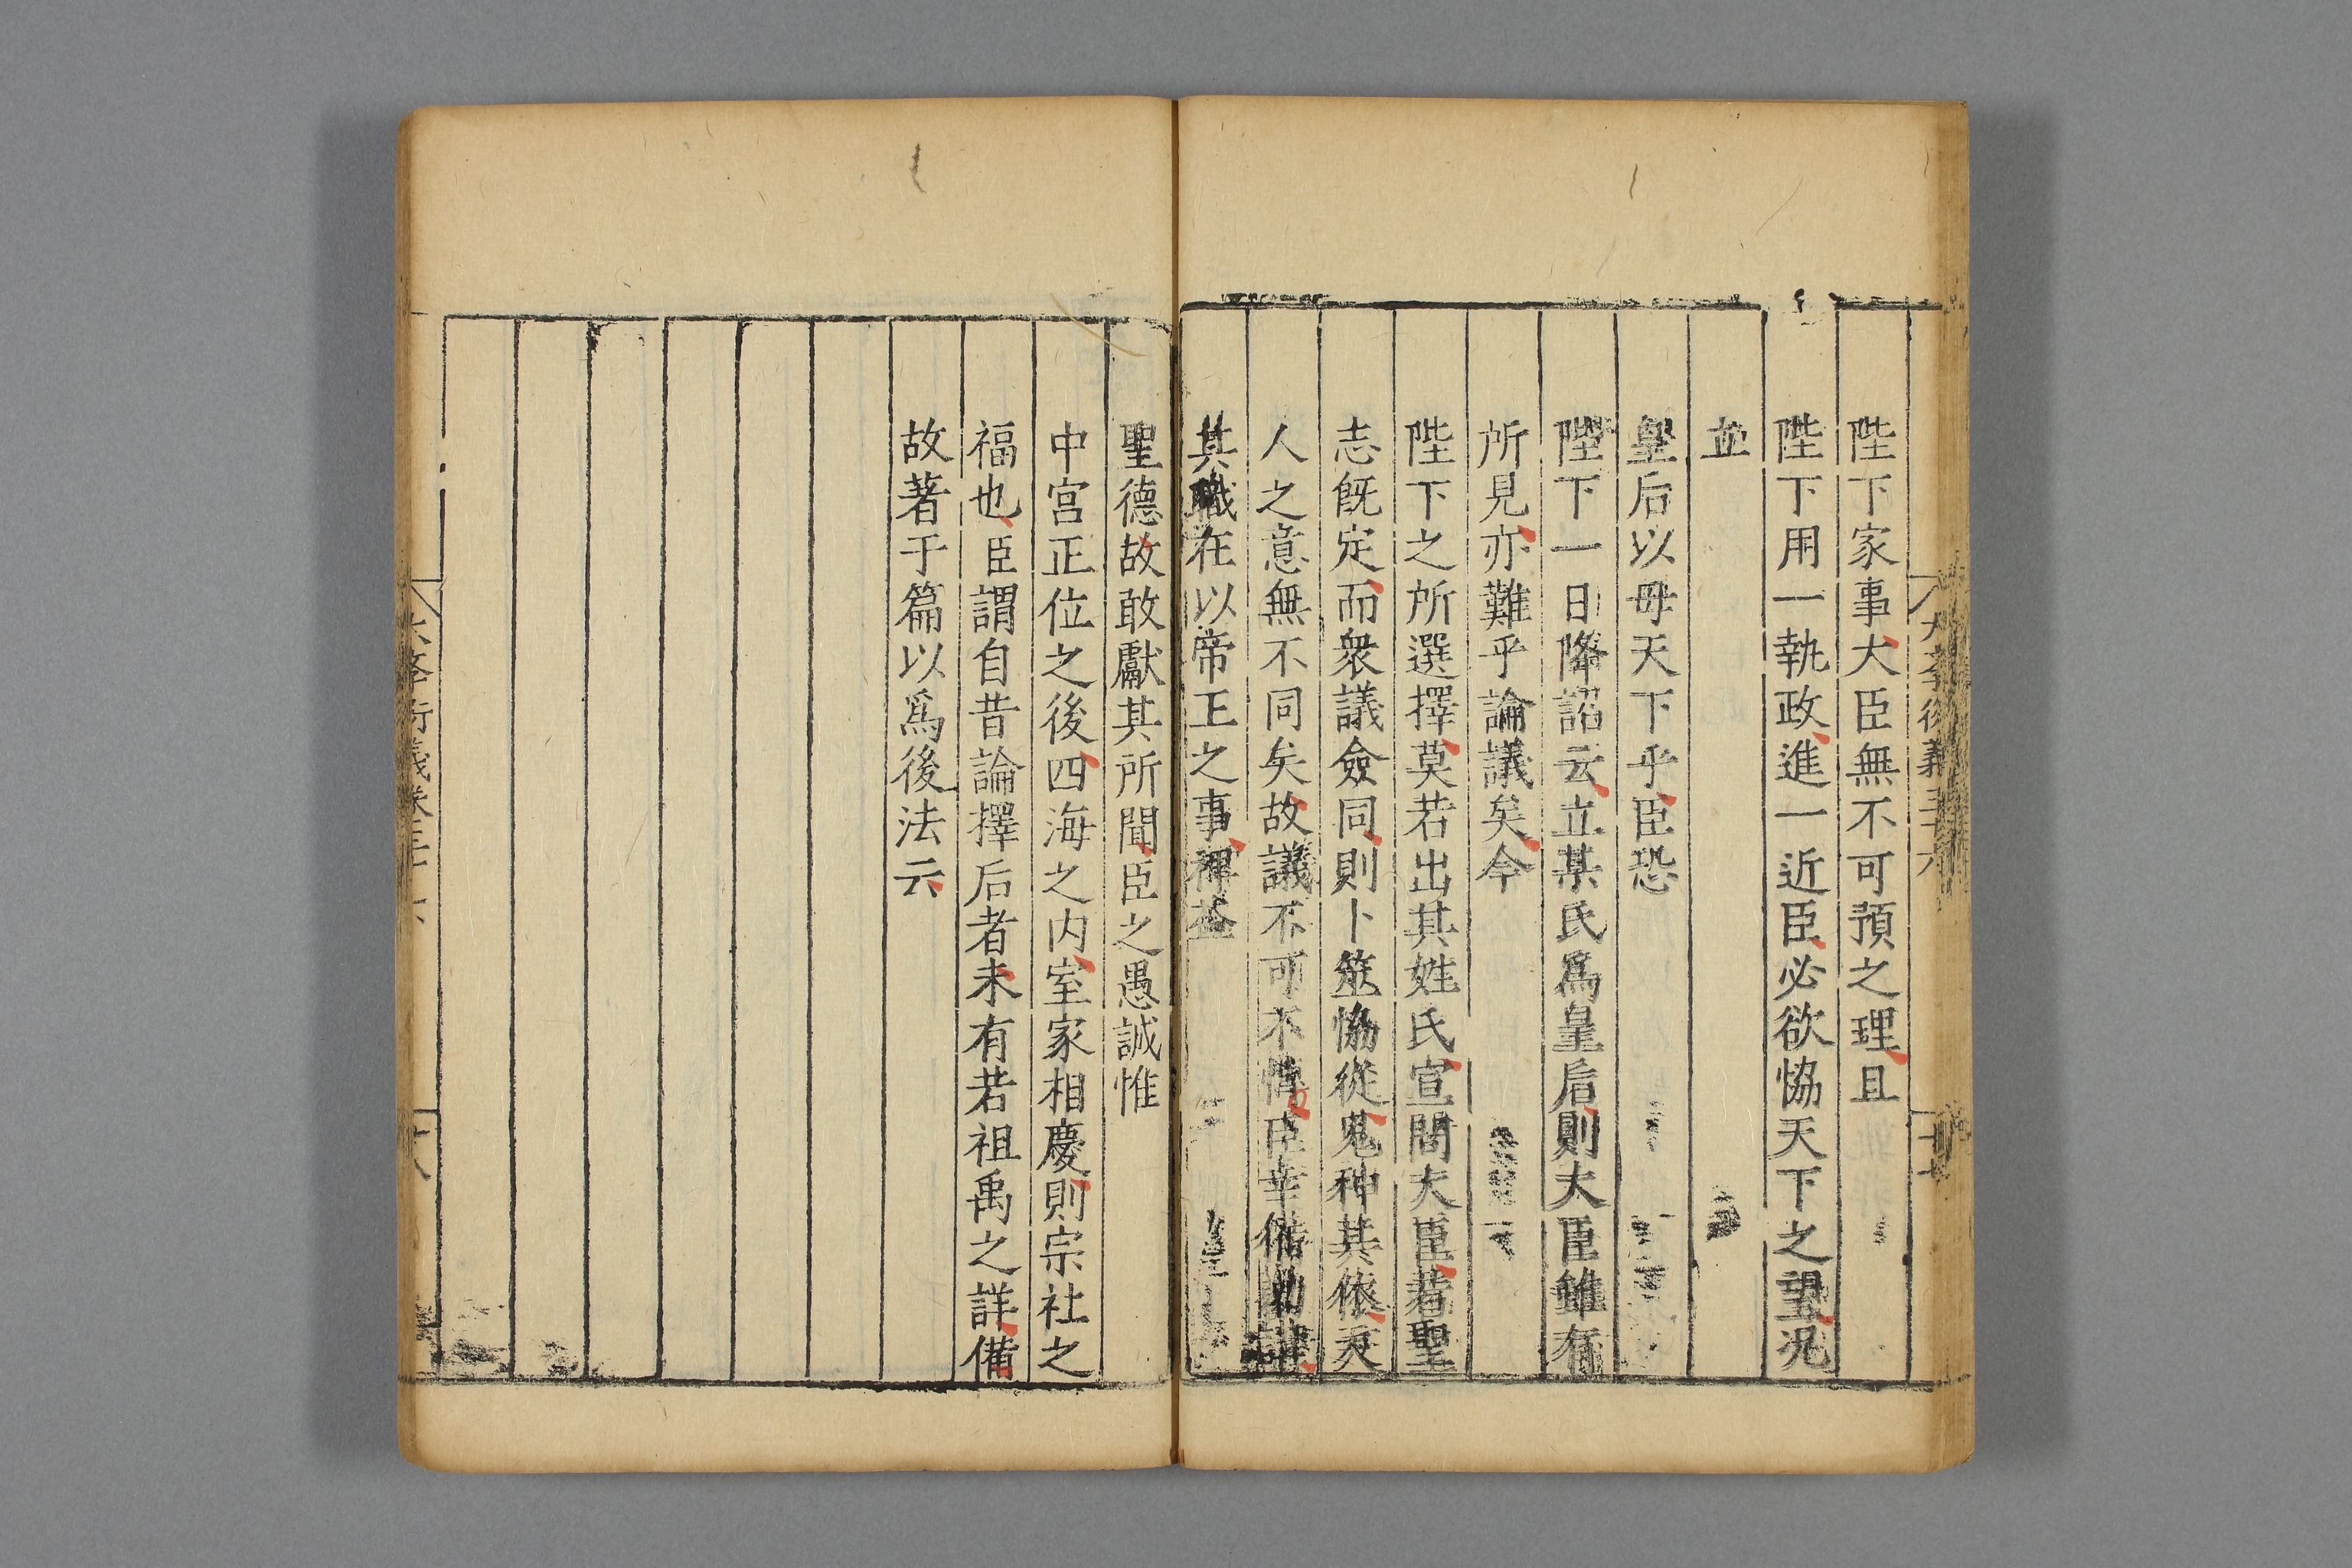 大學衍義三十六
十七
陛下家事大臣無不可預之理且
陛下用一執政進一近臣必欲恊天下之望况
並
皇后以母天下乎臣恐
陛下一日降詔云立某氏爲皇后則大臣雖有
所見亦難乎論議矣今
陛下之所選擇莫若出其姓氏宣問大臣若聖
志旣定而衆議僉同則卜筮恊從鬼神其依天
人之意無不同矣故議不可不愼臣幸備勸講
其職在以帝王之事裨益
聖德故敢獻其所聞臣之愚誠惟
中宫正位之後四海之内室家相慶則宗社之
福也臣謂自昔論擇后者未有若祖禹之詳備
故著于篇以爲後法云